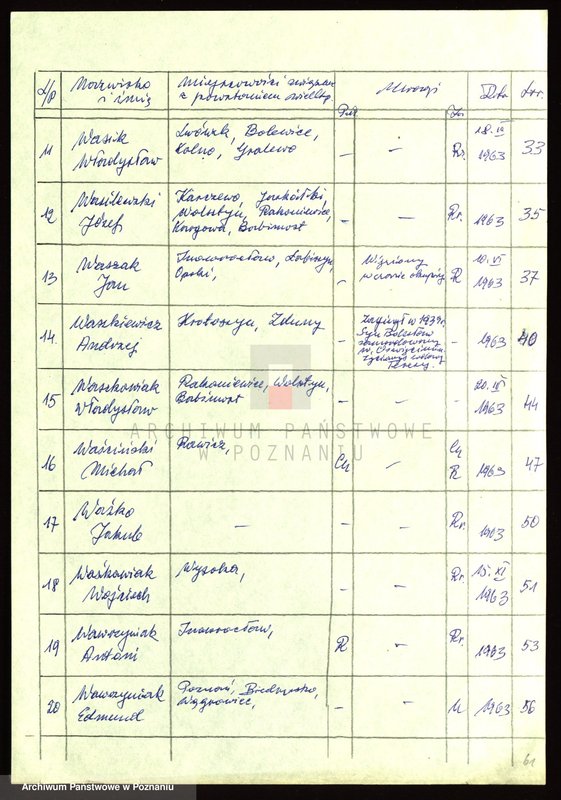 L/p Nazwisko i imię Miejscowości związan. z powstaniem wielkp. Uwagi Data Str.
11 Wasik Władysław Lwówek, Bolewice, Kolno, Gralewo – – Rr. 18.IX 1963 33
12 Wasilewski Józef Karczewo, Wolsztyn, Rakoniewice, Kargowa, Babimost – – Rr. 1963 35
13 Waszak Jan Inowrocław, Łabiszyn, – w czasie okupacji R 10.VI 1963 37
14 Waszkiewicz Andrzej Krotoszyn, Zduny – Zaginął w 1939 r. Syn Bolesław zamordowany w Oświęcimiu. – 1963 40
15 Waszkowiak Władysław Rakoniewice, Wolsztyn, Babimost – – – 1963 44
16 Waściński Michał Rawicz, – R 1963 47
17 Waśko Jakub – – – Rr. 1963 50
18 Waśkowiak Wojciech Wysoka, – – Rr. 15.XI 1963 51
19 Wawrzyniak Antoni Inowrocław, R – Rr. 1963 53
20 Wawrzyniak Edmund Poznań, Biedrusko, Wągrowiec, – – 1963 56
61
ARCHIWUM PAŃSTWOWE
W POZNANIU
Archiwum Państwowe w Poznaniu